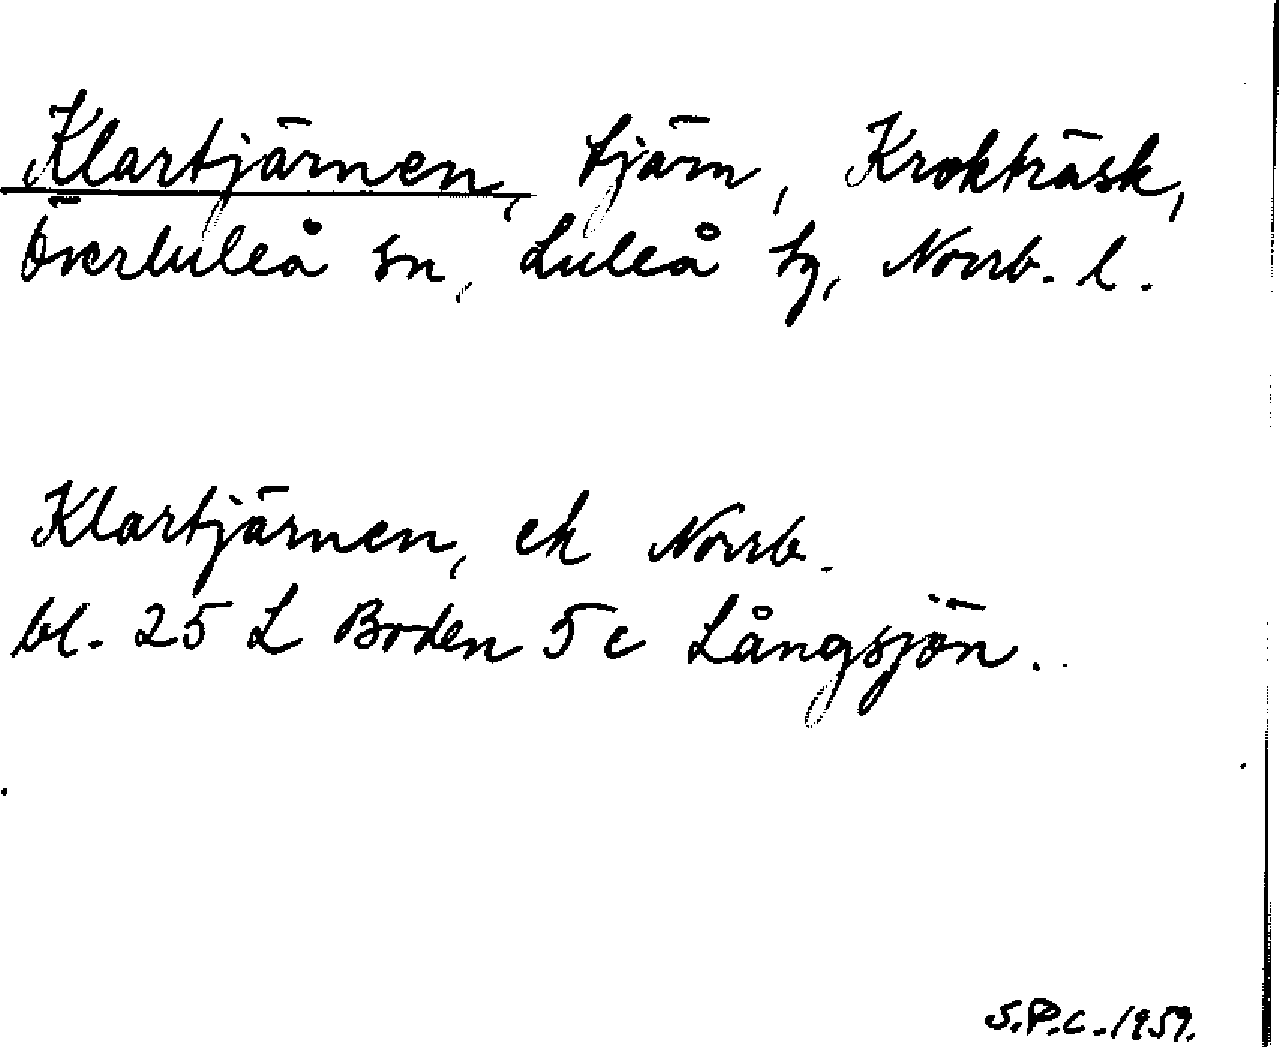 Klartjärnen, tjärn, Krokträsk,
Överluleå sn, Luleå tg, Norrb. l.
Klartjärnen, ek Norrb.
bl. 25 L Boden 5c Långsjön.
S.P.C. 1959.